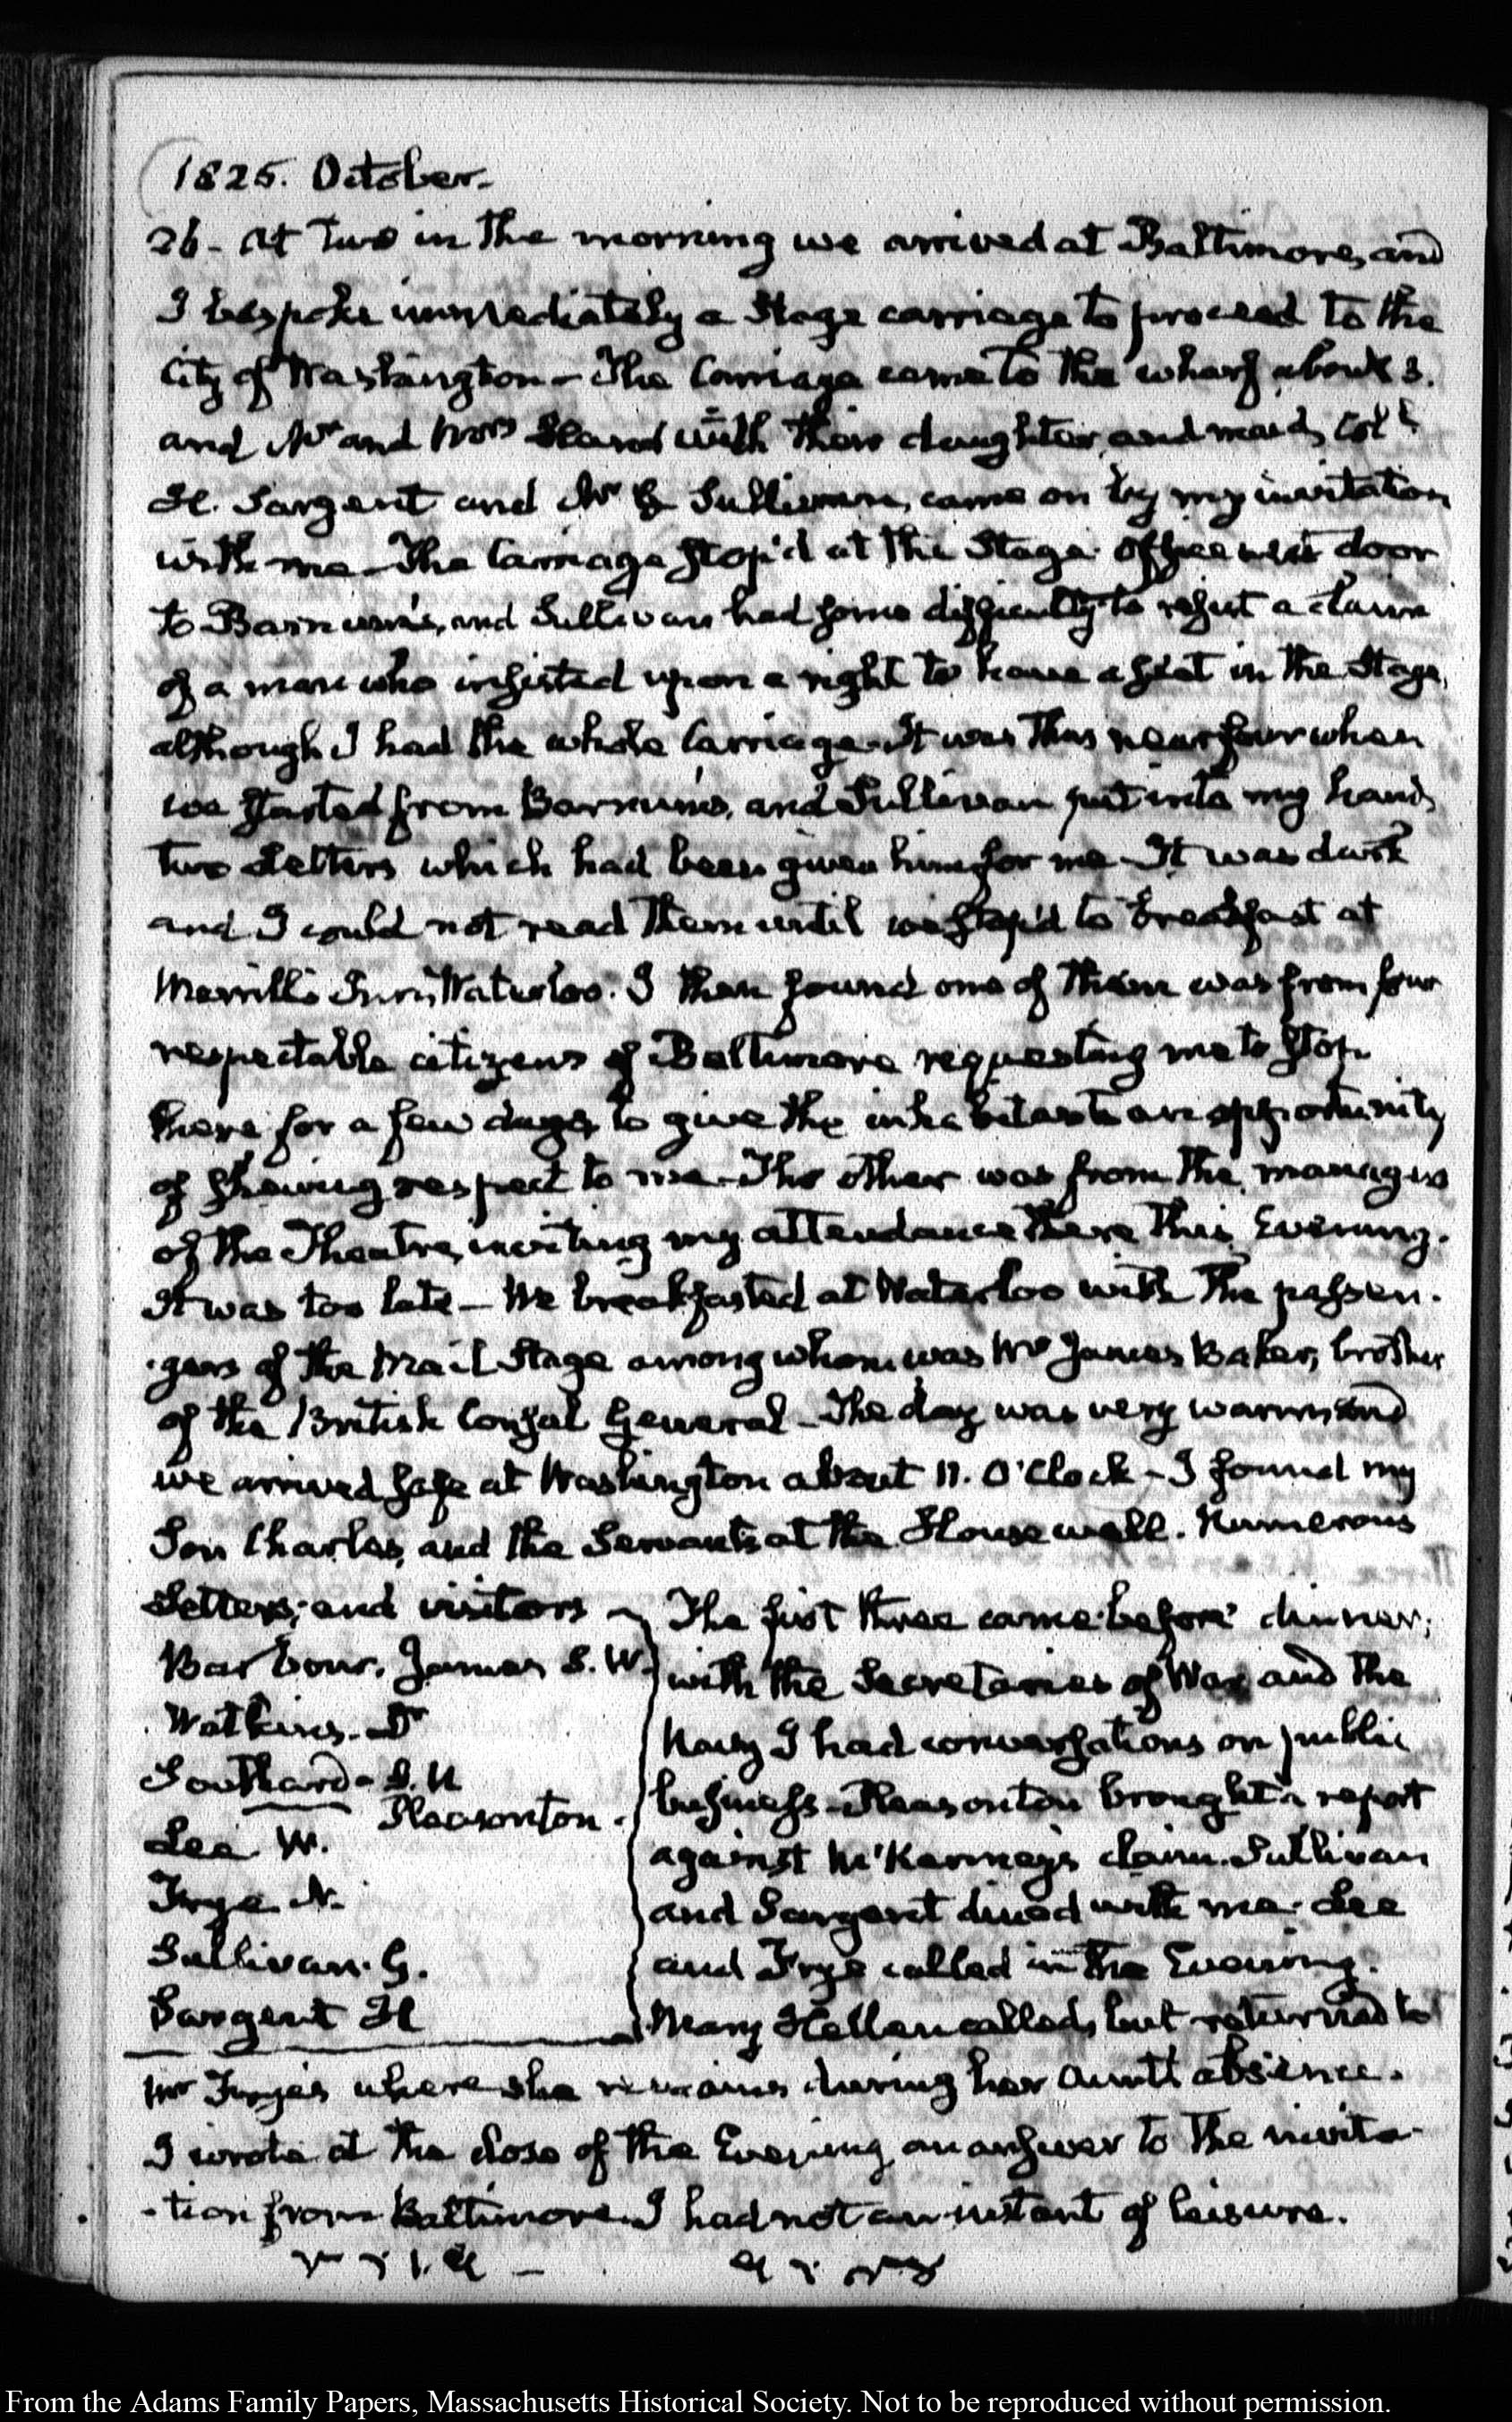 1825. October.
26 - At two in the morning we arrived at Baltimore, and
I bespoke immediately a Stage carriage to proceed to the
City of Washington - The Carriage came to the wharf about 3.
and Mr and Mrs with their daughter, and maid, Coll
H. Sargent and Mr G Sullivan, came on by my invitation
with me - The Carriage stop'd at the Stage Office next door
to Barnum's, and Sullivan had some difficulty to refute a claim
of a man who insisted upon a right to have a seat in the Stage,
although I had the whole Carriage. It was thus near four when
we started from Barnum's, and Sullivan put into my hands
two Letters which had been given him for me - It was dark
and I could not read them until we stop'd to breakfast at
Merrill's Inn, Waterloo. I then found one of them was from four
respectable citizens of Baltimore requesting me to stop
there for a few days, to give the inhabitants an opportunity
of shewing respect to me - The other was from the managers
of the Theatre, inviting my attendance there this Evening.
It was too late - We breakfasted at Waterloo with the passen-
-gers of the Mail Stage among whom was Mr James Baker, brother
of the British Consul General - The day was very warm, and
we arrived safe at Washington about 11. O'Clock - I found my
Son Charles, and the Servants at the House well. Numerous
Letters; and visitors -
Barbour. James S. W.
Watkins. Dr
Southard - S. N
Pleasonton.
Lee W.
Frye N.
Sullivan. G.
Sargent H
The first three came before dinner;
with the Secretaries of War and the
Navy I had conversations on public
business - Pleasonton brought a report
against claim. Sullivan
and Sargent dined with me. Lee
and Frye called in the Evening.
Mary Hellen called, but returned to
Mr Frye's where she remains during her Aunt's absence.
I wrote at the close of the Evening an answer to the invita-
-tion from Baltimore. I had not an instant of leisure.